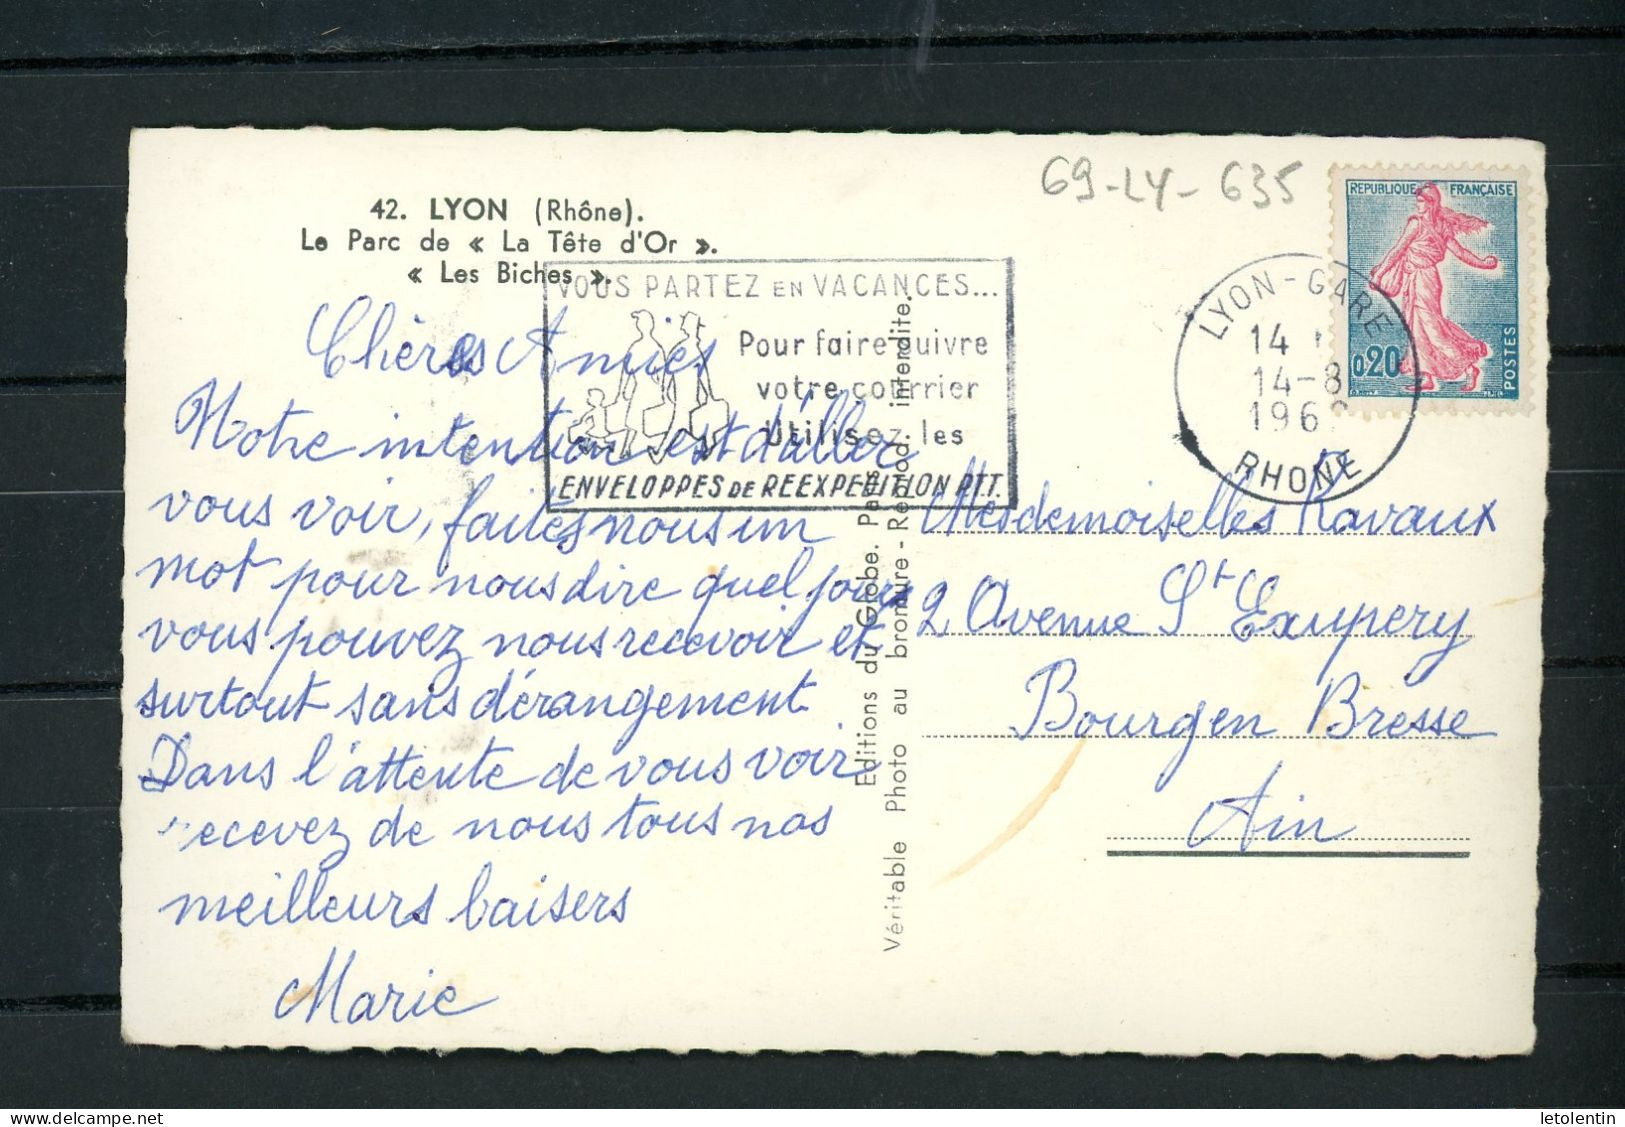 69-LY-635
42. LYON (Rhône).
Le Parc de « La Tête d'Or ».
« Les Biches ».
VOUS PARTEZ EN VACANCES...
Pour faire suivre
votre courrier
Utilisez les
ENVELOPPES DE REEXPEDITION P.T.T.
REPUBLIQUE FRANÇAISE
0,20
POSTES
LYON-GARE
14
14-8
196
RHONE
Chères Amies
Notre intention est d'aller
vous voir, faites nous un
mot pour nous dire quel jour
vous pouvez nous recevoir et
surtout sans dérangement
Dans l'attente de vous voir
recevez de nous tous nos
meilleurs baisers
Marie
Editions du Globe. Paris.
Véritable Photo au bromure - Reprod. interdite.
Mesdemoiselles Ravaux
2 Avenue St Exupery
Bourg en Bresse
Ain
letolentin